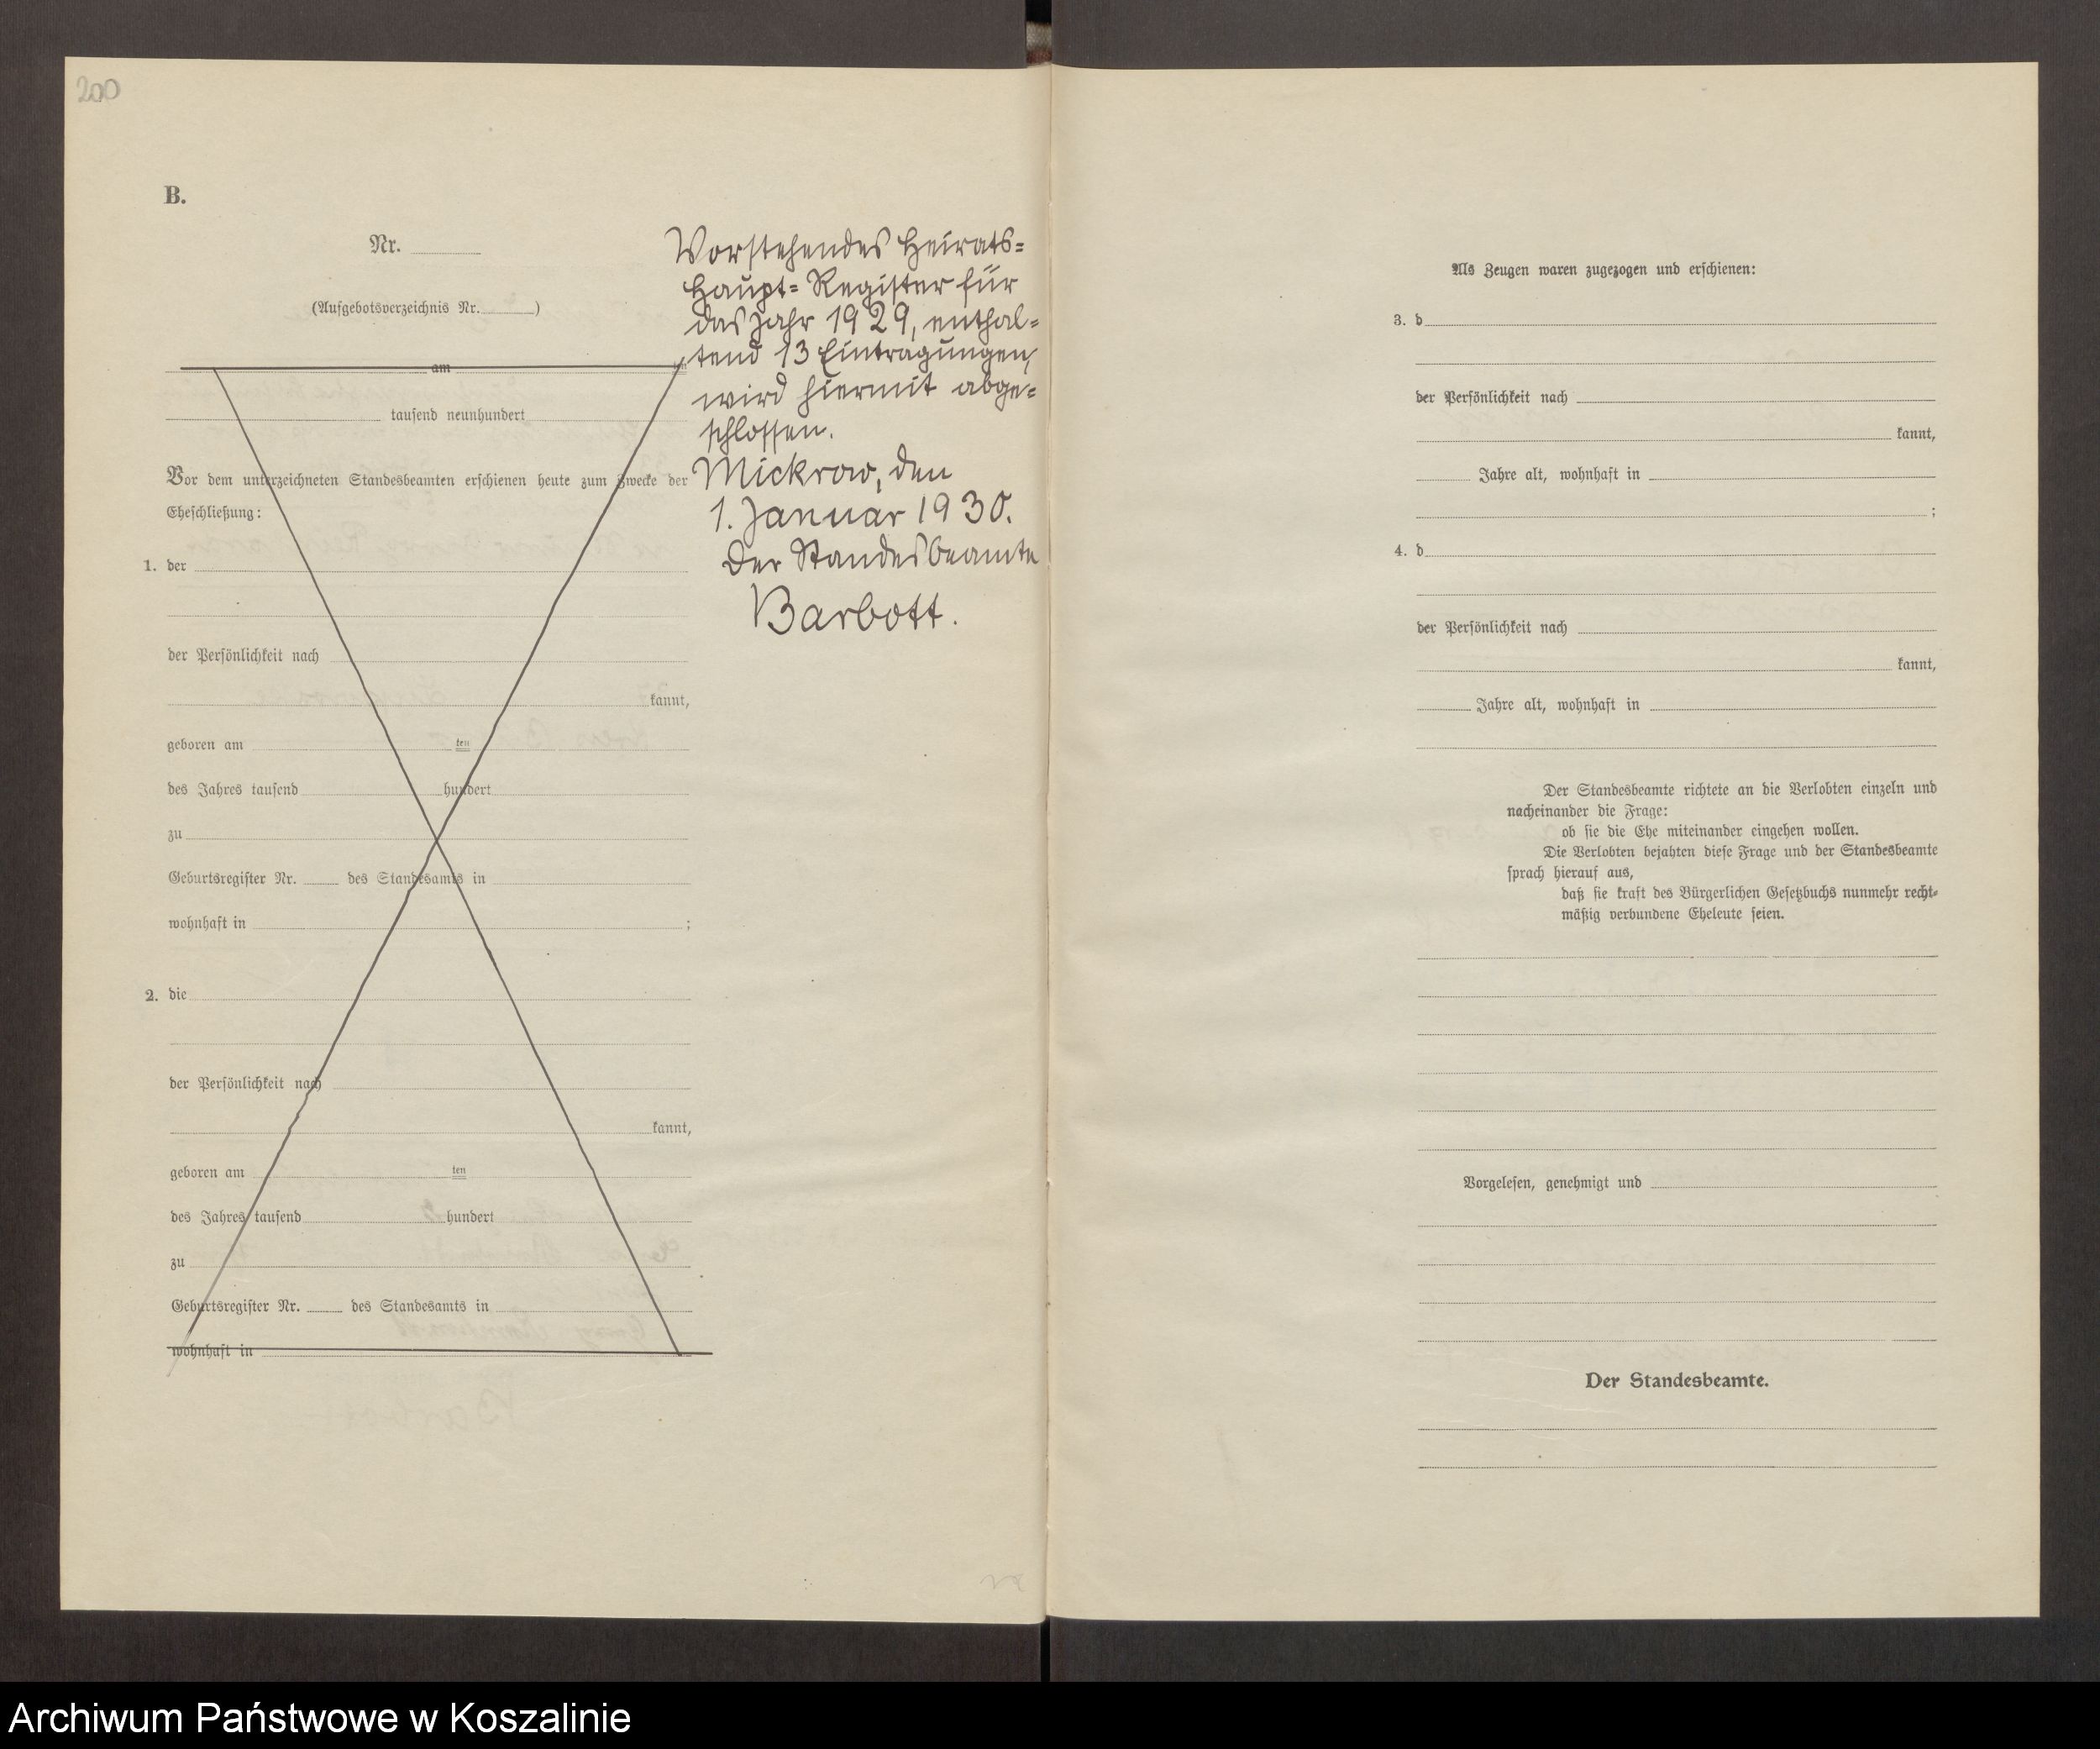 200
B.
Nr.
(Aufgebotsverzeichnis Nr. )
am ten
tausend neunhundert
Vor dem unterzeichneten Standesbeamten erschienen heute zum Zwecke der
Eheschließung:
1. der
der Persönlichkeit nach
kannt,
geboren am ten
des Jahres tausend hundert
zu
Geburtsregister Nr. des Standesamts in
wohnhaft in ;
2. die
der Persönlichkeit nach
kannt,
geboren am ten
des Jahres tausend hundert
zu
Geburtsregister Nr. des Standesamts in
wohnhaft in
Vorstehendes Heirats=
Haupt=Register für
das Jahr 1929, enthal=
tend 13 Eintragungen,
wird hiermit abge=
schlossen.
Mickrow, den
1. Januar 1930.
Der Standesbeamte
Barbott.
Als Zeugen waren zugezogen und erschienen:
3. d
der Persönlichkeit nach
kannt,
Jahre alt, wohnhaft in
;
4. d
der Persönlichkeit nach
kannt,
Jahre alt, wohnhaft in
Der Standesbeamte richtete an die Verlobten einzeln und
nacheinander die Frage:
ob sie die Ehe miteinander eingehen wollen.
Die Verlobten bejahten diese Frage und der Standesbeamte
sprach hierauf aus,
daß sie kraft des Bürgerlichen Gesetzbuchs nunmehr recht=
mäßig verbundene Eheleute seien.
Vorgelesen, genehmigt und
Der Standesbeamte.
Archiwum Państwowe w Koszalinie